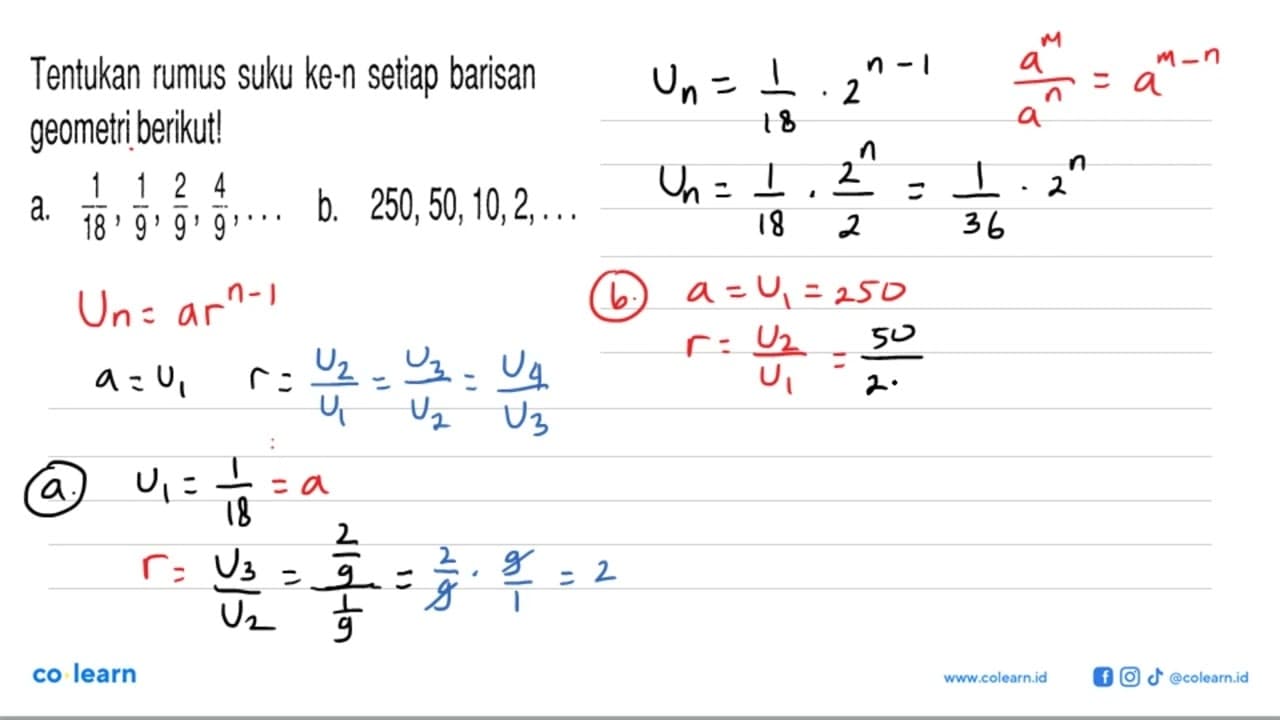 Tentukan rumus suku ke-n setiap barisan
geometri berikut!
a. 1/18, 1/9, 2/9, 4/9, ... b. 250, 50, 10, 2, ...
Un = ar^(n-1)
a = U₁ r = U₂/U₁ = U₃/U₂ = U₄/U₃
a. U₁ = 1/18 = a
r = U₃/U₂ = (2/9)/(1/9) = 2/9 · 9/1 = 2
Un = 1/18 · 2^(n-1) a^m/a^n = a^(m-n)
Un = 1/18 · 2^n/2 = 1/36 · 2^n
b. a = U₁ = 250
r = U₂/U₁ = 50/2
co learn
www.colearn.id @colearn.id